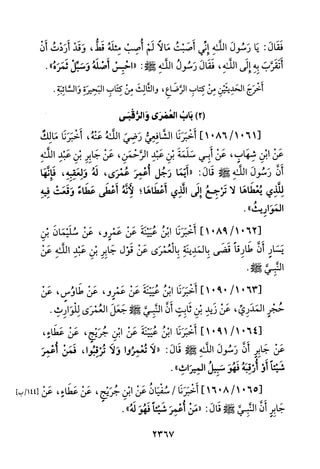 فَقَالَ: يَا رَسُولَ اللَّهِ إِنِّي أَصَبْتُ مَالاً لَمْ أُصِبْ مِثْلَهُ قَطُّ، وَقَدْ أَرَدْتُ أَنْ
أَتَقَرَّبَ بِهِ إِلَى اللَّهِ، فَقَالَ رَسُولُ اللَّهِ ﷺ: «احْبِسْ أَصْلَهُ وَسَبِّلْ ثَمَرَهُ».
أَخْرَجَ الحَدِيثَيْنِ مِنْ كِتَابِ الرَّضَاعِ، والثَّالِثَ مِنْ كِتَابِ البَحِيرَةِ وَالسَّائِبَةِ.
(٢) بَابُ العُمْرَى وَالرُّقْبَى
[١٠٨٦/١٠٦١] أَخْبَرَنَا الشَّافِعِيُّ رَضِيَ اللَّهُ عَنْهُ، أَخْبَرَنَا مَالِكٌ
عَنْ ابْنِ شِهَابٍ، عَنْ أَبِي سَلَمَةَ بْنِ عَبْدِ الرَّحْمَنِ، عَنْ جَابِرِ بْنِ عَبْدِ اللَّهِ
أَنَّ رَسُولَ اللَّهِ ﷺ قَالَ: «أَيُّمَا رَجُلٍ أُعْمِرَ عُمْرَى، لَهُ وَلِعَقِبِهِ، فَإِنَّهَا
لِلَّذِي يُعْطَاهَا لا تَرْجِعُ إِلَى الَّذِي أَعْطَاهَا؛ لِأَنَّهُ أَعْطَى عَطَاءً وَقَعَتْ فِيهِ
المَوَارِيثُ».
[١٠٨٩/١٠٦٢] أَخْبَرَنَا ابْنُ عُيَيْنَةَ عَنْ عَمْرٍو، عَنْ سُلَيْمَانَ بْنِ
يَسَارٍ أَنَّ طَارِقاً قَضَى بِالمَدِينَةِ بِالْعُمْرَى عَنْ قَوْلِ جَابِرِ بْنِ عَبْدِ اللَّهِ عَنْ
النَّبِيِّ ﷺ.
[١٠٩٠/١٠٦٣] أَخْبَرَنَا ابْنُ عُيَيْنَةَ عَنْ عَمْرٍو، عَنْ طَاوُسٍ، عَنْ
حُجْرٍ المَدَرِيِّ، عَنْ زَيْدِ بْنِ ثَابِتٍ أَنَّ النَّبِيَّ ﷺ جَعَلَ العُمْرَى لِلْوَارِثِ.
[١٠٩١/١٠٦٤] أَخْبَرَنَا ابْنُ عُيَيْنَةَ عَنْ ابْنِ جُرَيْجٍ، عَنْ عَطَاءٍ،
عَنْ جَابِرٍ أَنَّ رَسُولَ اللَّهِ ﷺ قَالَ: «لَا تُعْمِرُوا وَلَا تُرْقِبُوا، فَمَنْ أُعْمِرَ
شَيْئاً أَوْ أُرْقِبَهُ فَهُوَ سَبِيلُ المِيرَاثِ».
[١٦٠٨/١٠٦٥] أَخْبَرَنَا / سُفْيَانُ عَنْ ابْنِ جُرَيْجٍ، عَنْ عَطَاءٍ، عَنْ [١٤٤/ب]
جَابِرٍ أَنَّ النَّبِيَّ ﷺ قَالَ: «مَنْ أُعْمِرَ شَيْئاً فَهُوَ لَهُ».
٢٣٦٧